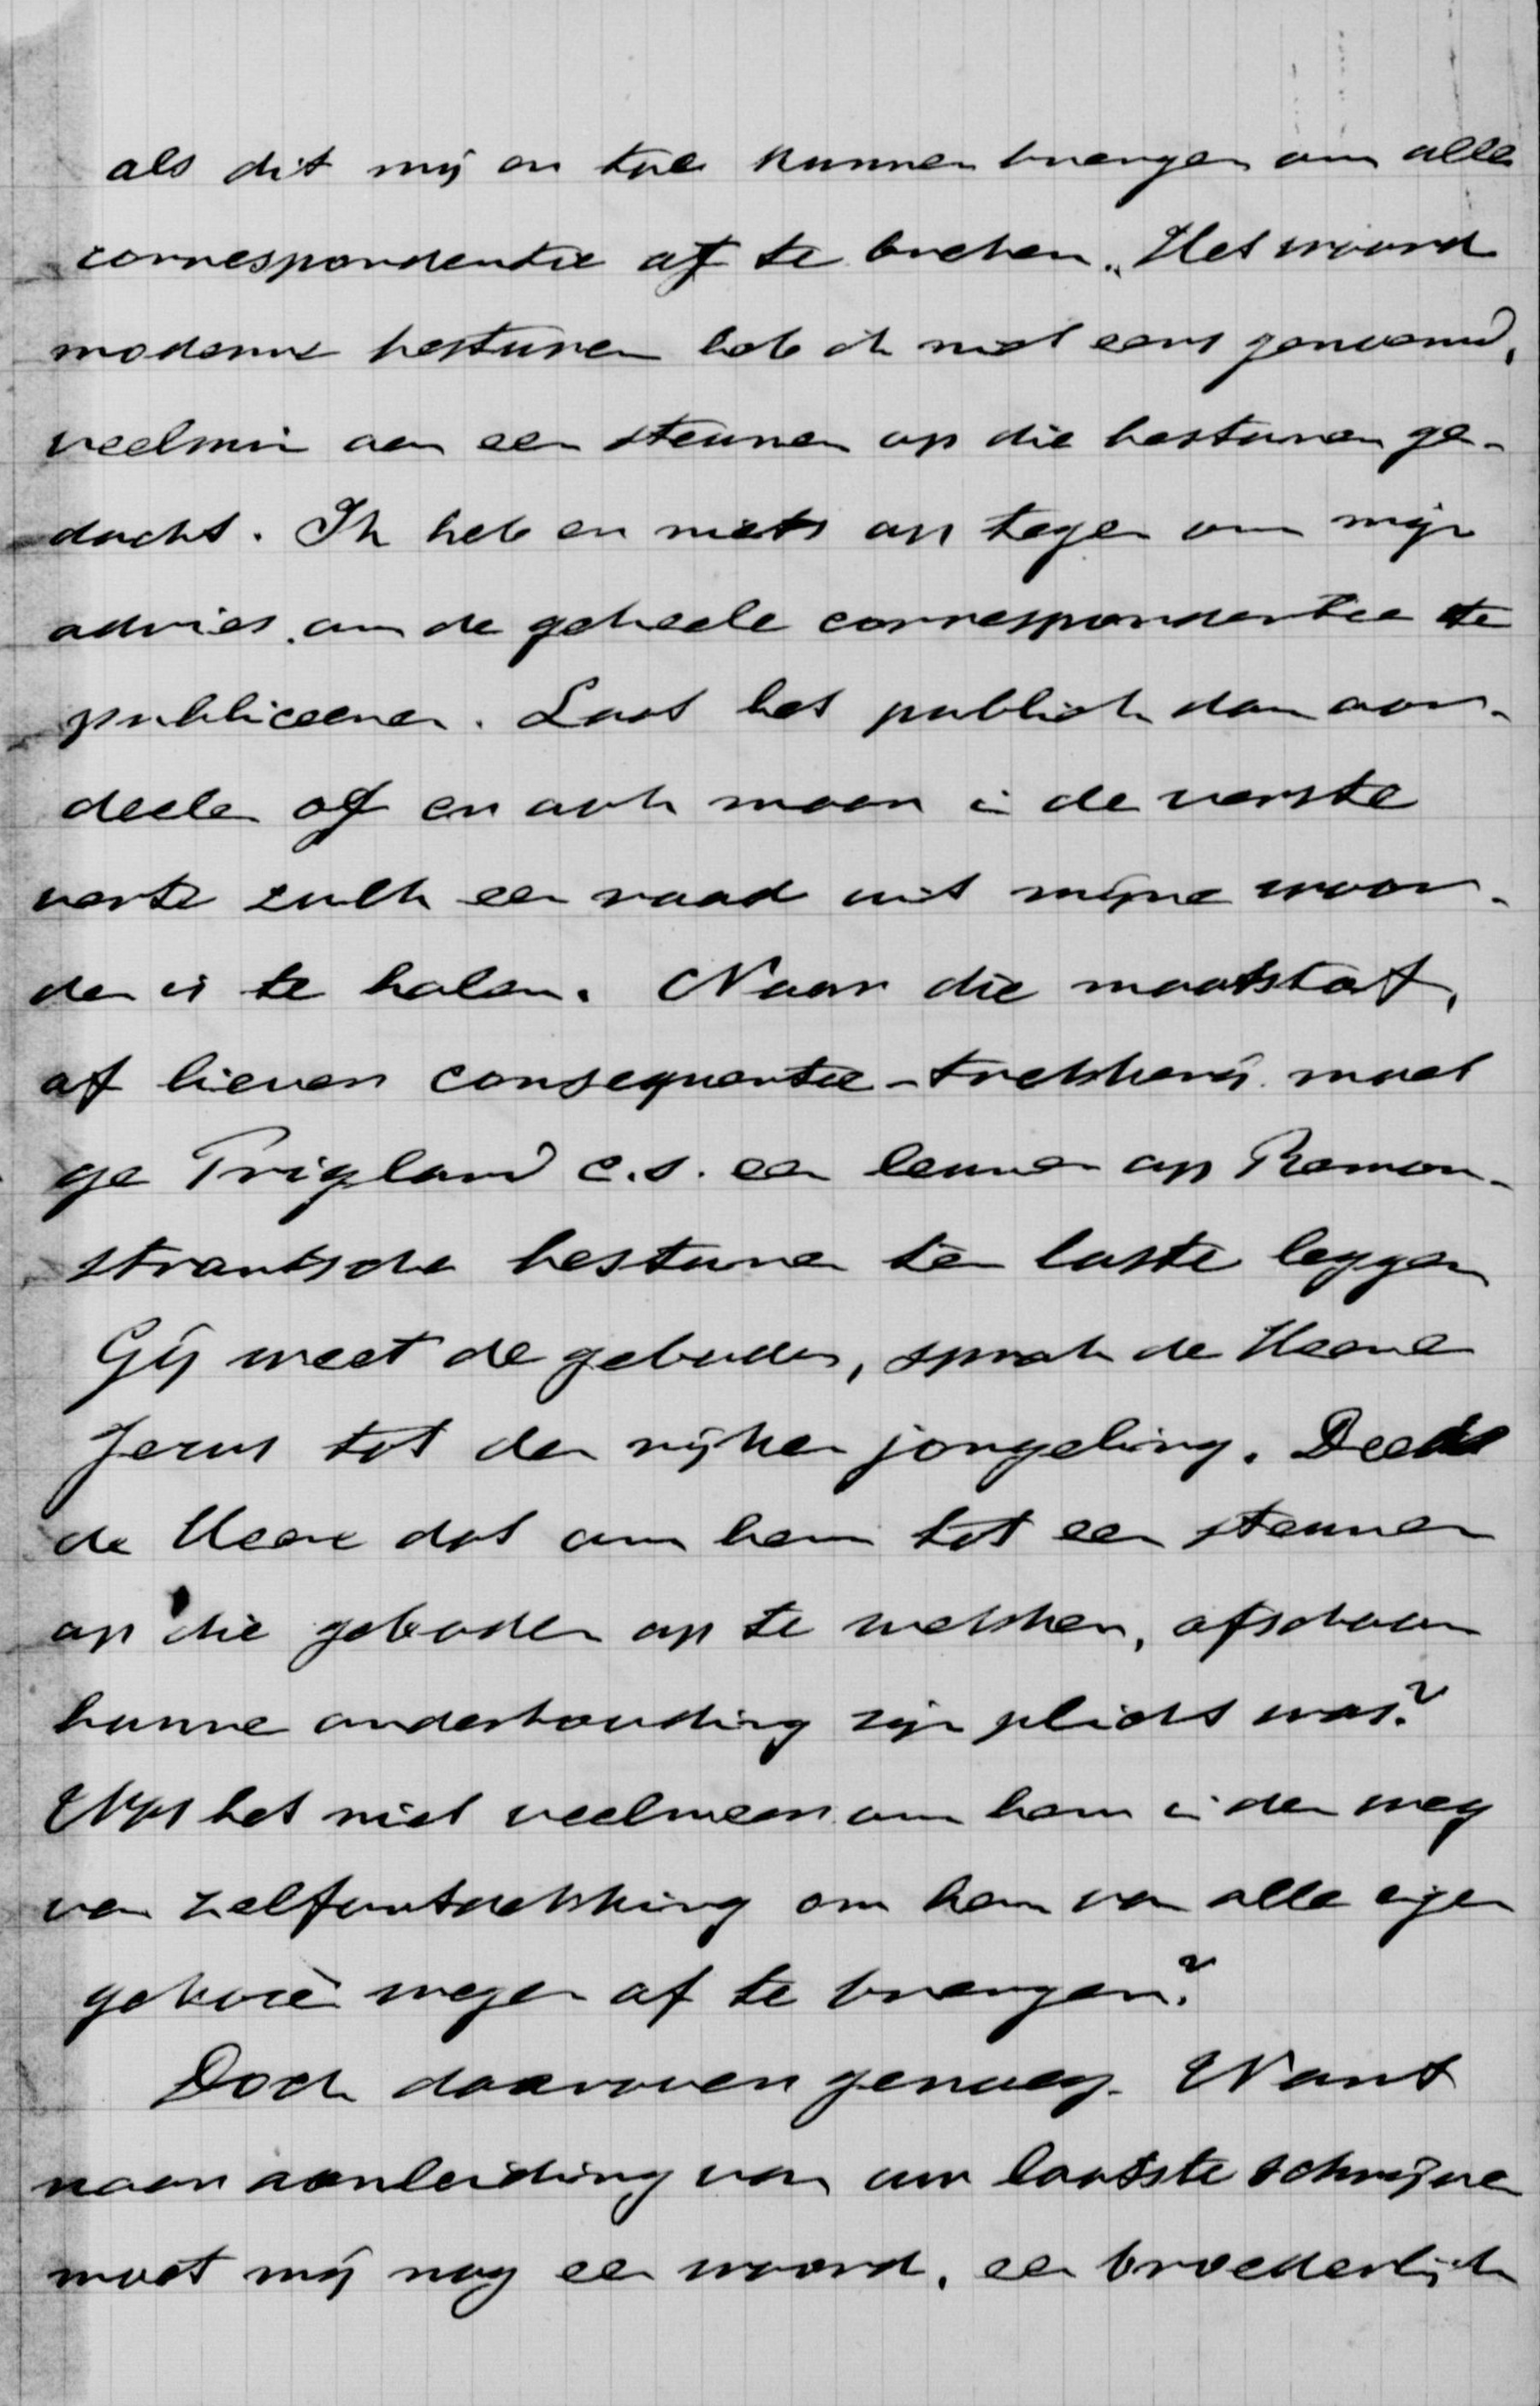 als dit mij er toe kunnen brengen om alle
correspondentie af te breken. Het woord
moderne besturen heb ik niet eens genoemd,
veelmin aan een steunen op die besturen ge-
dacht. Ik heb er niets op tegen om mijn
advies om de geheele correspondentie te
publiceeren. Laat het publiek dan oor-
deelen of er ook maar in de verste
verte zulk een raad uit mijne woor-
den is te halen. Naar die maatstaf,
of liever consequentie-trekkerij moet
ge Trigland c.s. een leunen op Remon-
strantsche besturen ten laste leggen
Gij weet de geboden, sprak de Heere
Jezus tot den rijken jongeling. Deed
de Heere dat om hem tot een steunen
op die geboden op te wekken, ofschoon
hunne onderhouding zijn plicht was?
Was het niet veelmeer om hem in den weg
van zelfontdekking om hem van alle eigen
gekozen wegen af te brengen?
Doch daarover genoeg. Want
naar aanleiding van uw laatste schrijven
moet mij nog een woord, een broederlijk